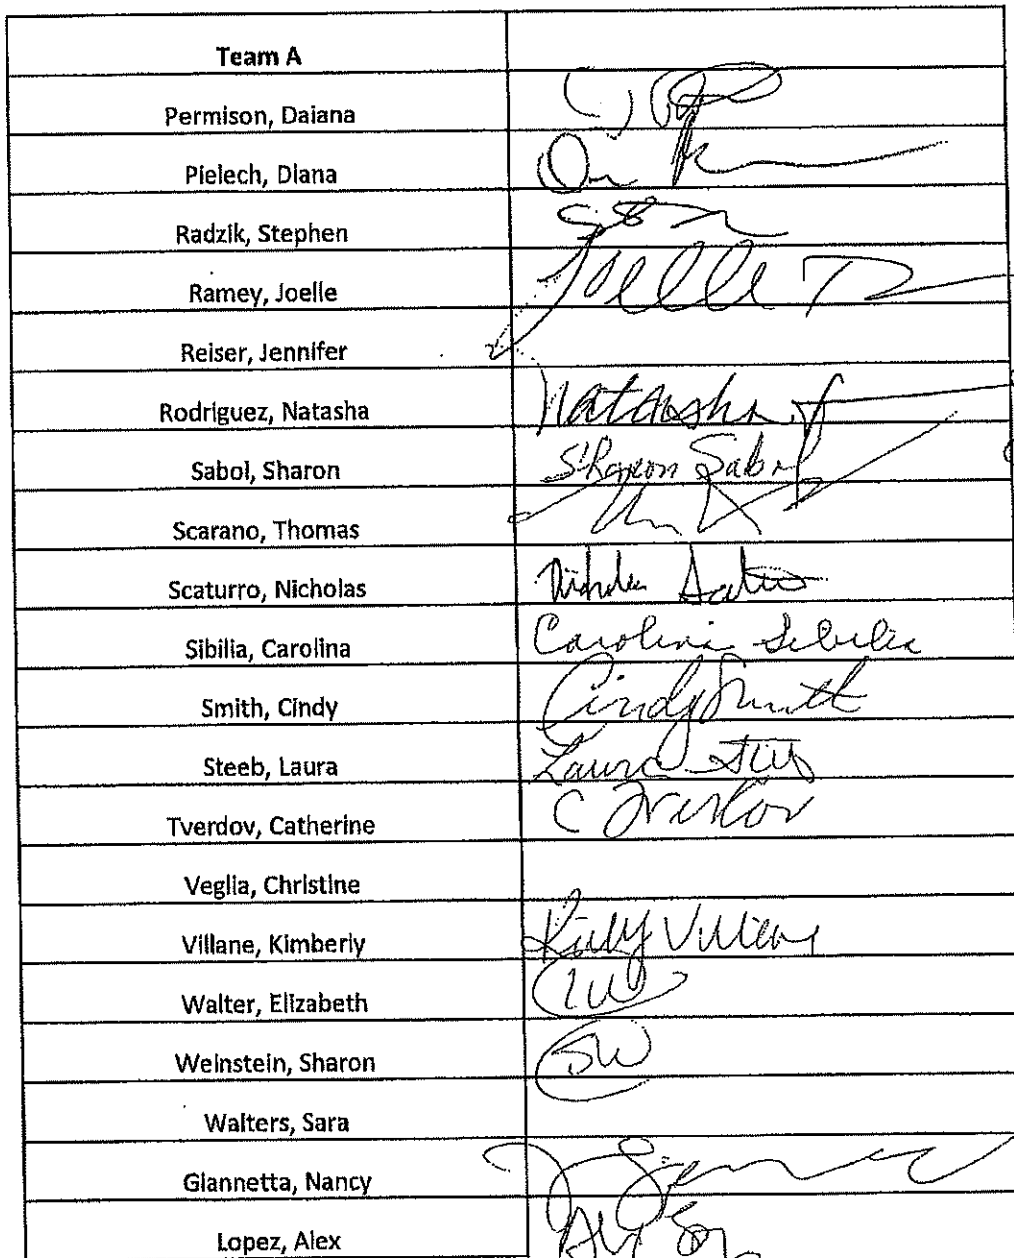 Team A
Permison, Daiana
Pielech, Diana
Radzik, Stephen
Ramey, Joelle Joelle R
Reiser, Jennifer
Rodriguez, Natasha Natasha
Sabol, Sharon Sharon Sabol
Scarano, Thomas
Scaturro, Nicholas
Sibilia, Carolina Carolina Sibilia
Smith, Cindy Cindy Smith
Steeb, Laura Laura
Tverdov, Catherine C Tverdov
Veglia, Christine
Villane, Kimberly
Walter, Elizabeth
Weinstein, Sharon SW
Walters, Sara
Giannetta, Nancy
Lopez, Alex